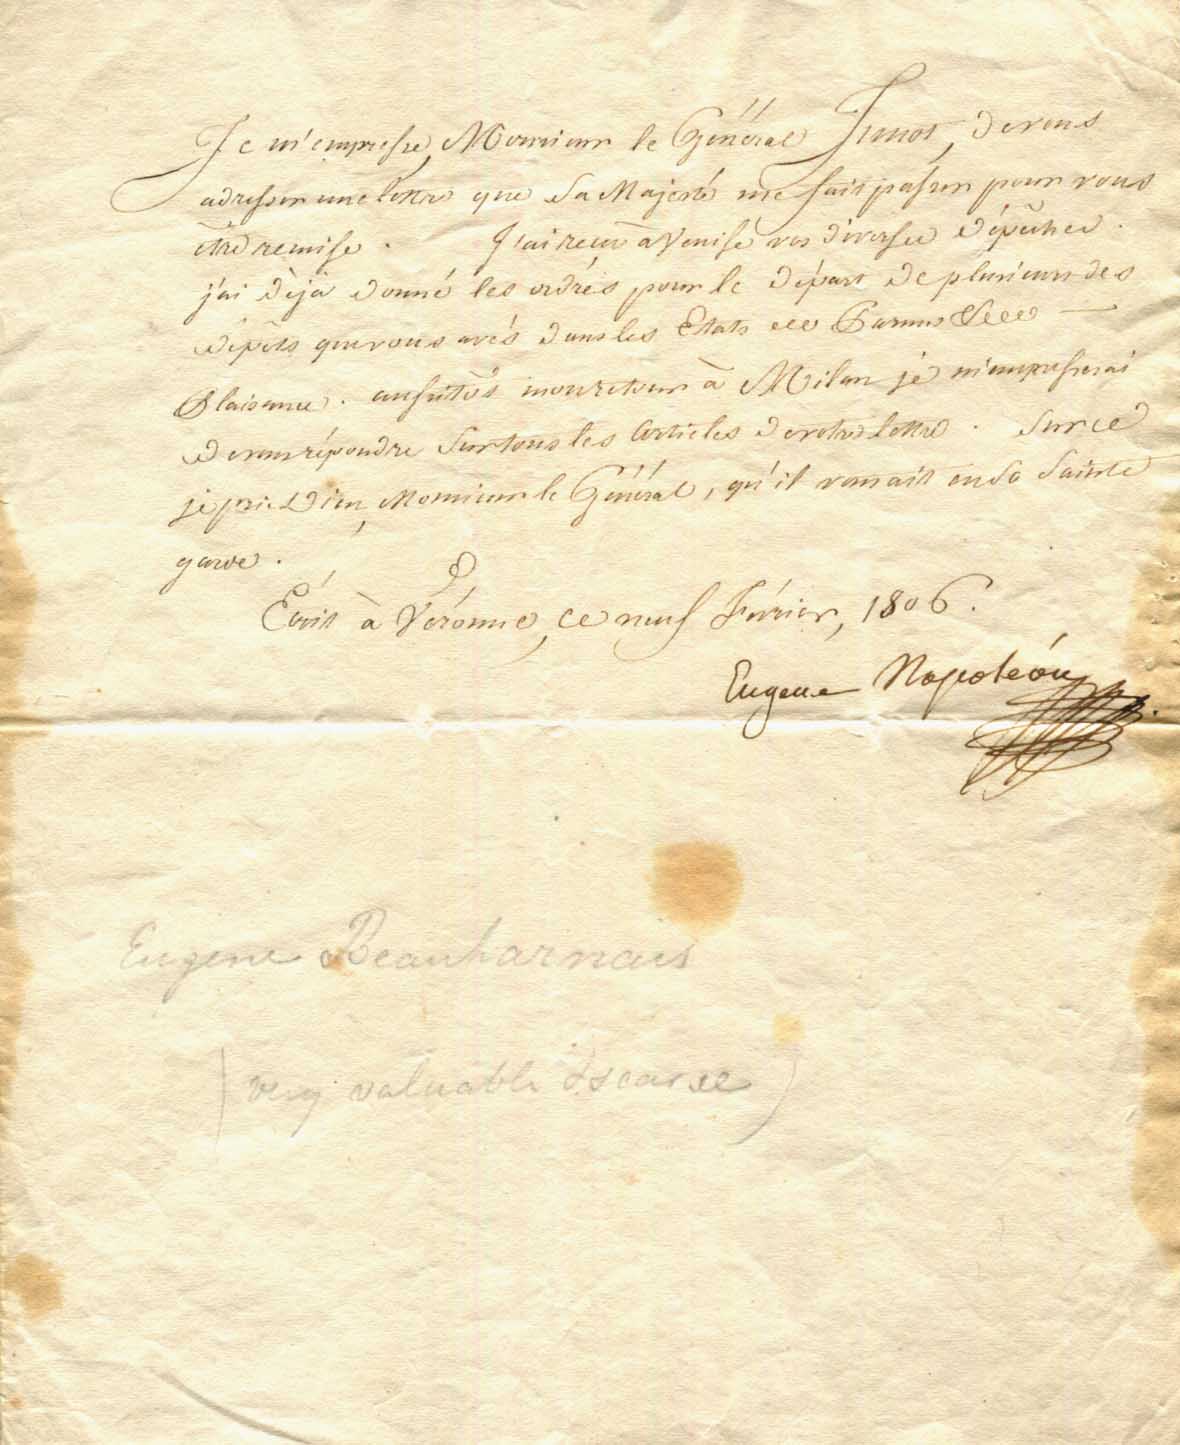 Je m'empresse, Monsieur le Général Junot, de vous
adresser une lettre que Sa Majesté me fait passer pour vous
être remise. J'ai reçu à Venise vos diverses dépêches.
j'ai dèjà donné les ordrés pour le départ de plusieurs des
dépôts que vous avés dans les Etats de Parme &
Plaisance. aussitôt mon retour à Milan je m'empresserai
de vous répondre sur tous les articles de votre lettre. Sur ce
je prie Dieu, Monsieur le Général, qu'il vous ait en Sa Sainte
garde.
Ecrit à Véronne, ce neuf Février, 1806.
Eugene Napoléon
Eugene Beauharnais
(very valuable & scarce)